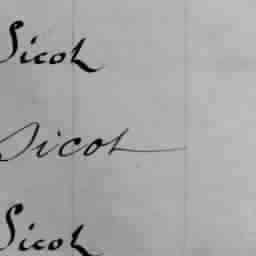 Sicot
Sicot
Sicot